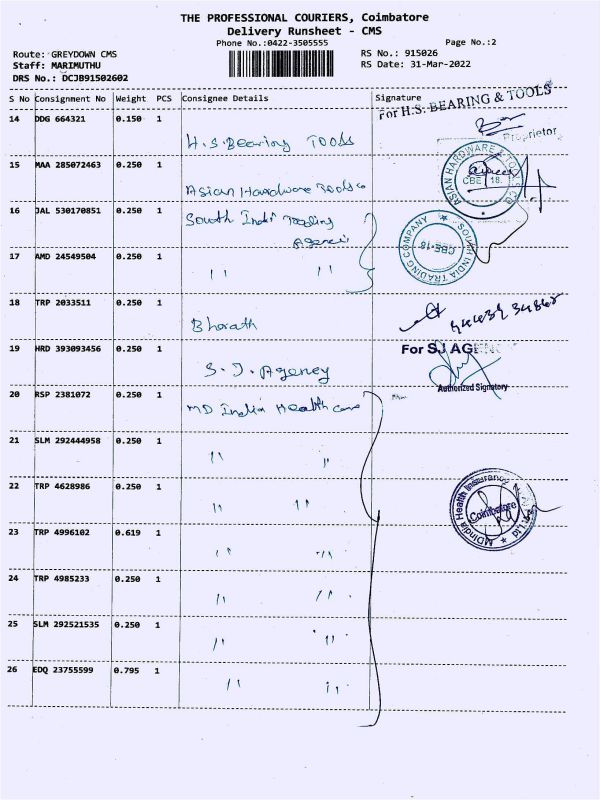 THE PROFESSIONAL COURIERS, Coimbatore
Delivery Runsheet - CMS
Phone No.:0422-3505555
Page No.:2
Route: GREYDOWN CMS
RS No.: 915026
Staff: MARIMUTHU
RS Date: 31-Mar-2022
DRS No.: DCJB91502602
S No Consignment No Weight PCS Consignee Details Signature
For H.S. BEARING & TOOLS
14 DDG 664321 0.150 1
Proprietor
H.S.Bearing Tools
15 MAA 285072463 0.250 1
ASIAN HARDWARE & TOOLS CO
CBE 18.
Asian Hardware Tools
16 JAL 530170851 0.250 1
South Indi Trading
Agenci
SOUTH INDIA TRADING COMPANY
CBE-18
17 AMD 24549504 0.250 1
" "
18 TRP 2033511 0.250 1
Bharath
19 HRD 393093456 0.250 1
For SJ AGEN
S.J.Agency
Authorized Signatory
20 RSP 2381072 0.250 1
MD India Health care
21 SLM 292444958 0.250 1
" "
22 TRP 4628986 0.250 1
" "
MDIndia Health Insurance
Coimbatore
23 TRP 4996102 0.619 1
" "
24 TRP 4985233 0.250 1
" "
25 SLM 292521535 0.250 1
" "
26 EDQ 23755599 0.795 1
" "